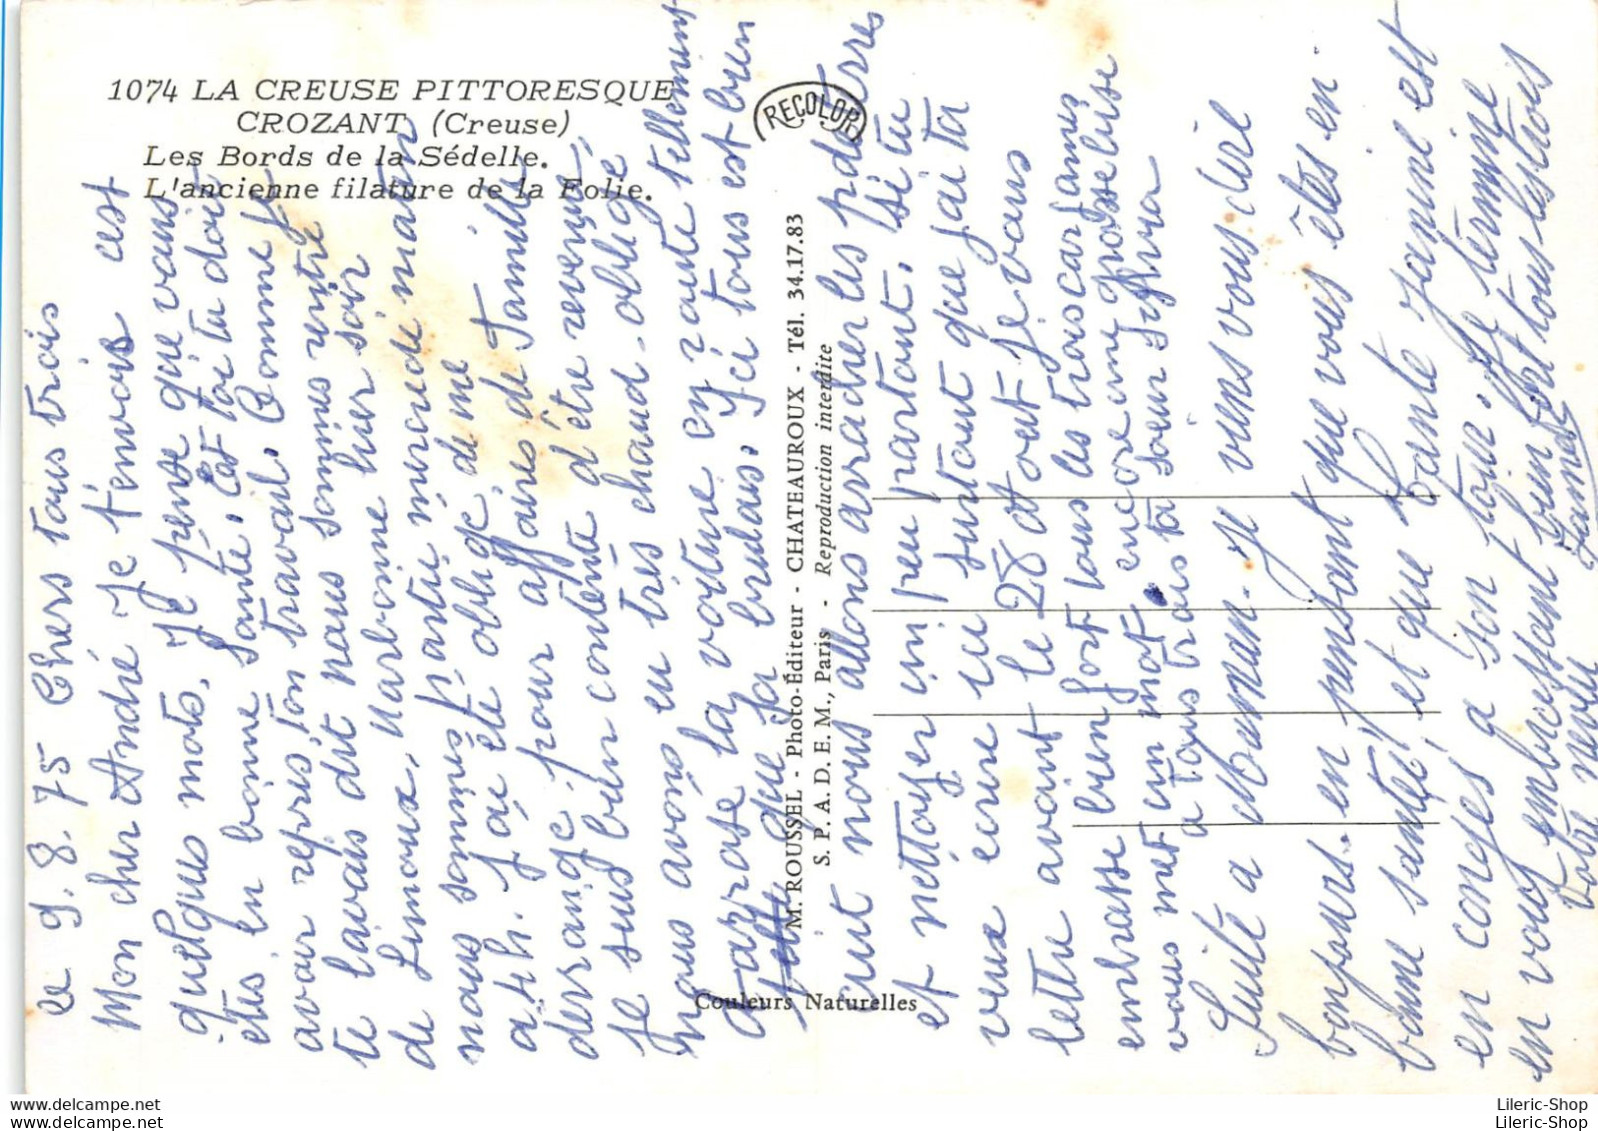 1074 LA CREUSE PITTORESQUE
CROZANT (Creuse)
Les Bords de la Sédelle.
L'ancienne filature de la Folie.
RECOLOR
M. ROUSSEL - Photo-Éditeur - CHATEAUROUX - Tél. 34.17.83
S. P. A. D. E. M., Paris - Reproduction interdite
Couleurs Naturelles
le 9.8.75 Chers tous trois
Mon cher André je t'envoie c'est
quelques mots, je pense que vous
etes en bonne santé, et toi tu doit
avoir repris ton travail. Comme je
te l'avais dit nous sommes rentré
de Limoux, Narbonne hier soir
nous sommes partie mercredi matin
a 4h. j'ai été obligé de me
dérrangé pour affaires de familles
je suis bien contente d'être revenue,
nous avons eu très chaud - obligé
d'arrosé la voiture en route tellement
que sa brulais. Ici tous est bien
cuit nous allons arracher les p. de terres
et nettoyer un peu partout, si tu
veux ecrire ici surtout que j'ai ta
lettre avant le 28 Aout je vous
embrasse bien fort tous les trois car James
vous met un mot encore une grosse bise
a tous trois ta soeur Sylvia
Suite a Maman - Je viens vous dire
bonjours - en pensant que vous êtes en
bonne santé, et que Tante Janine est
en congés a son tour. Je termine
en vous embrassant bien fort tous les trois
Votre neveu James
Lileric-Shop
Lileric-Shop
www.delcampe.net
www.delcampe.net